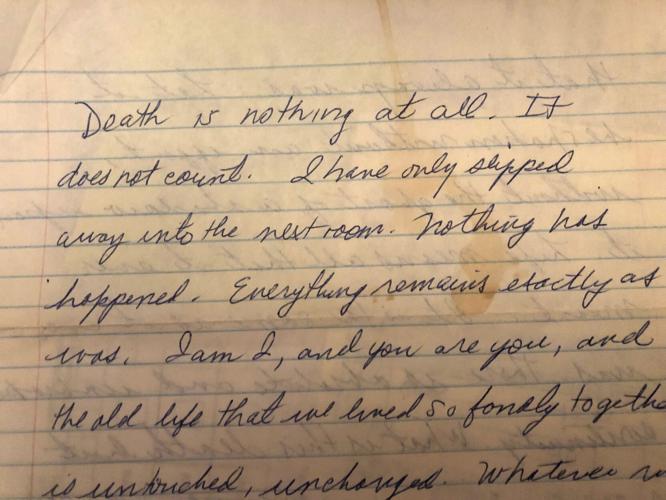 Death is nothing at all. It
does not count. I have only slipped
away into the next room. Nothing has
happened. Everything remains exactly as
was. I am I, and you are you, and
the old life that we lived so fondly togethe
is untouched, unchanged. Whatever